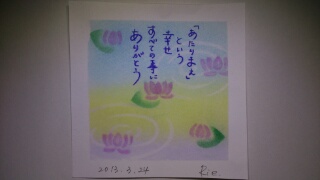 「あたりまえ」
という
幸せ
すべての事に
ありがとう
2013.3.24
Rie.